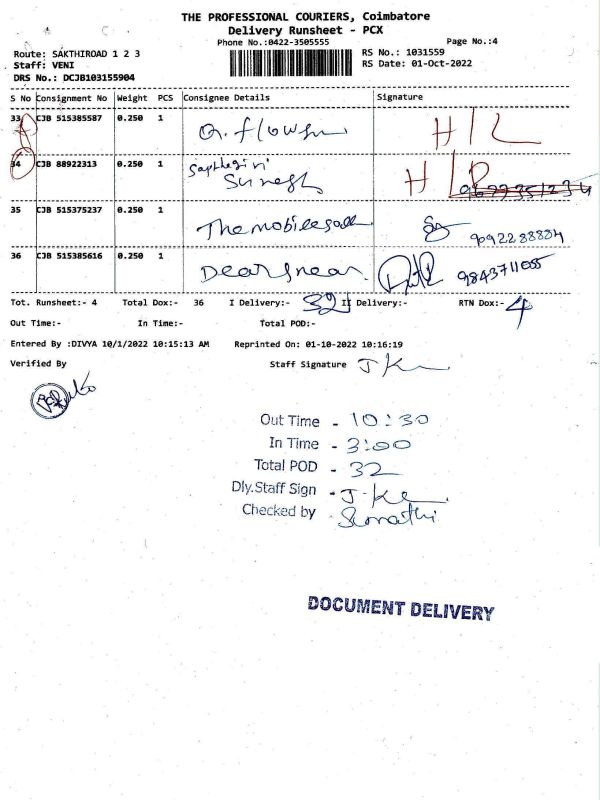 THE PROFESSIONAL COURIERS, Coimbatore
Delivery Runsheet - PCX
Phone No.:0422-3505555 Page No.:4
Route: SAKTHIROAD 1 2 3 RS No.: 1031559
Staff: VENI RS Date: 01-Oct-2022
DRS No.: DCJB103155904
S No Consignment No Weight PCS Consignee Details Signature
33 CJB 515385587 0.250 1 H/L
34 CJB 88922313 0.250 1 Sapthagiri
Suresh H
35 CJB 515375237 0.250 1 9092288884
36 CJB 515385616 0.250 1 9843711055
Tot. Runsheet:- 4 Total Dox:- 36 I Delivery:- 32 II Delivery:- RTN Dox:- 4
Out Time:- In Time:- Total POD:-
Entered By :DIVYA 10/1/2022 10:15:13 AM Reprinted On: 01-10-2022 10:16:19
Verified By Staff Signature
Out Time - 10:30
In Time - 3:00
Total POD - 32
Dly.Staff Sign -
Checked by -
DOCUMENT DELIVERY